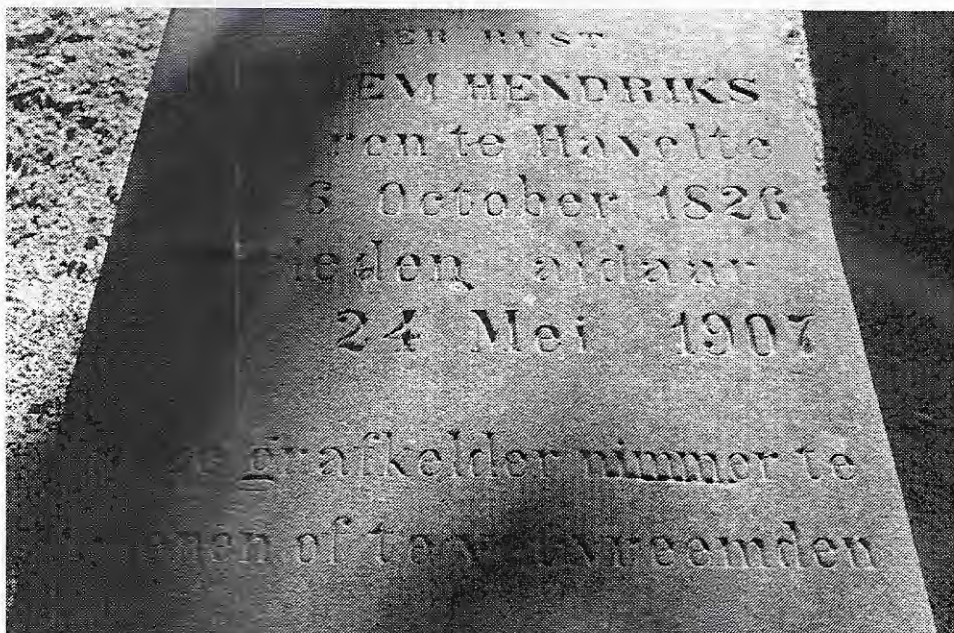 RUST
HENDRIKS
te Havelte
6 October 1826
aldaar
24 Mei 1907
grafkelder nimmer te
of te vervreemden